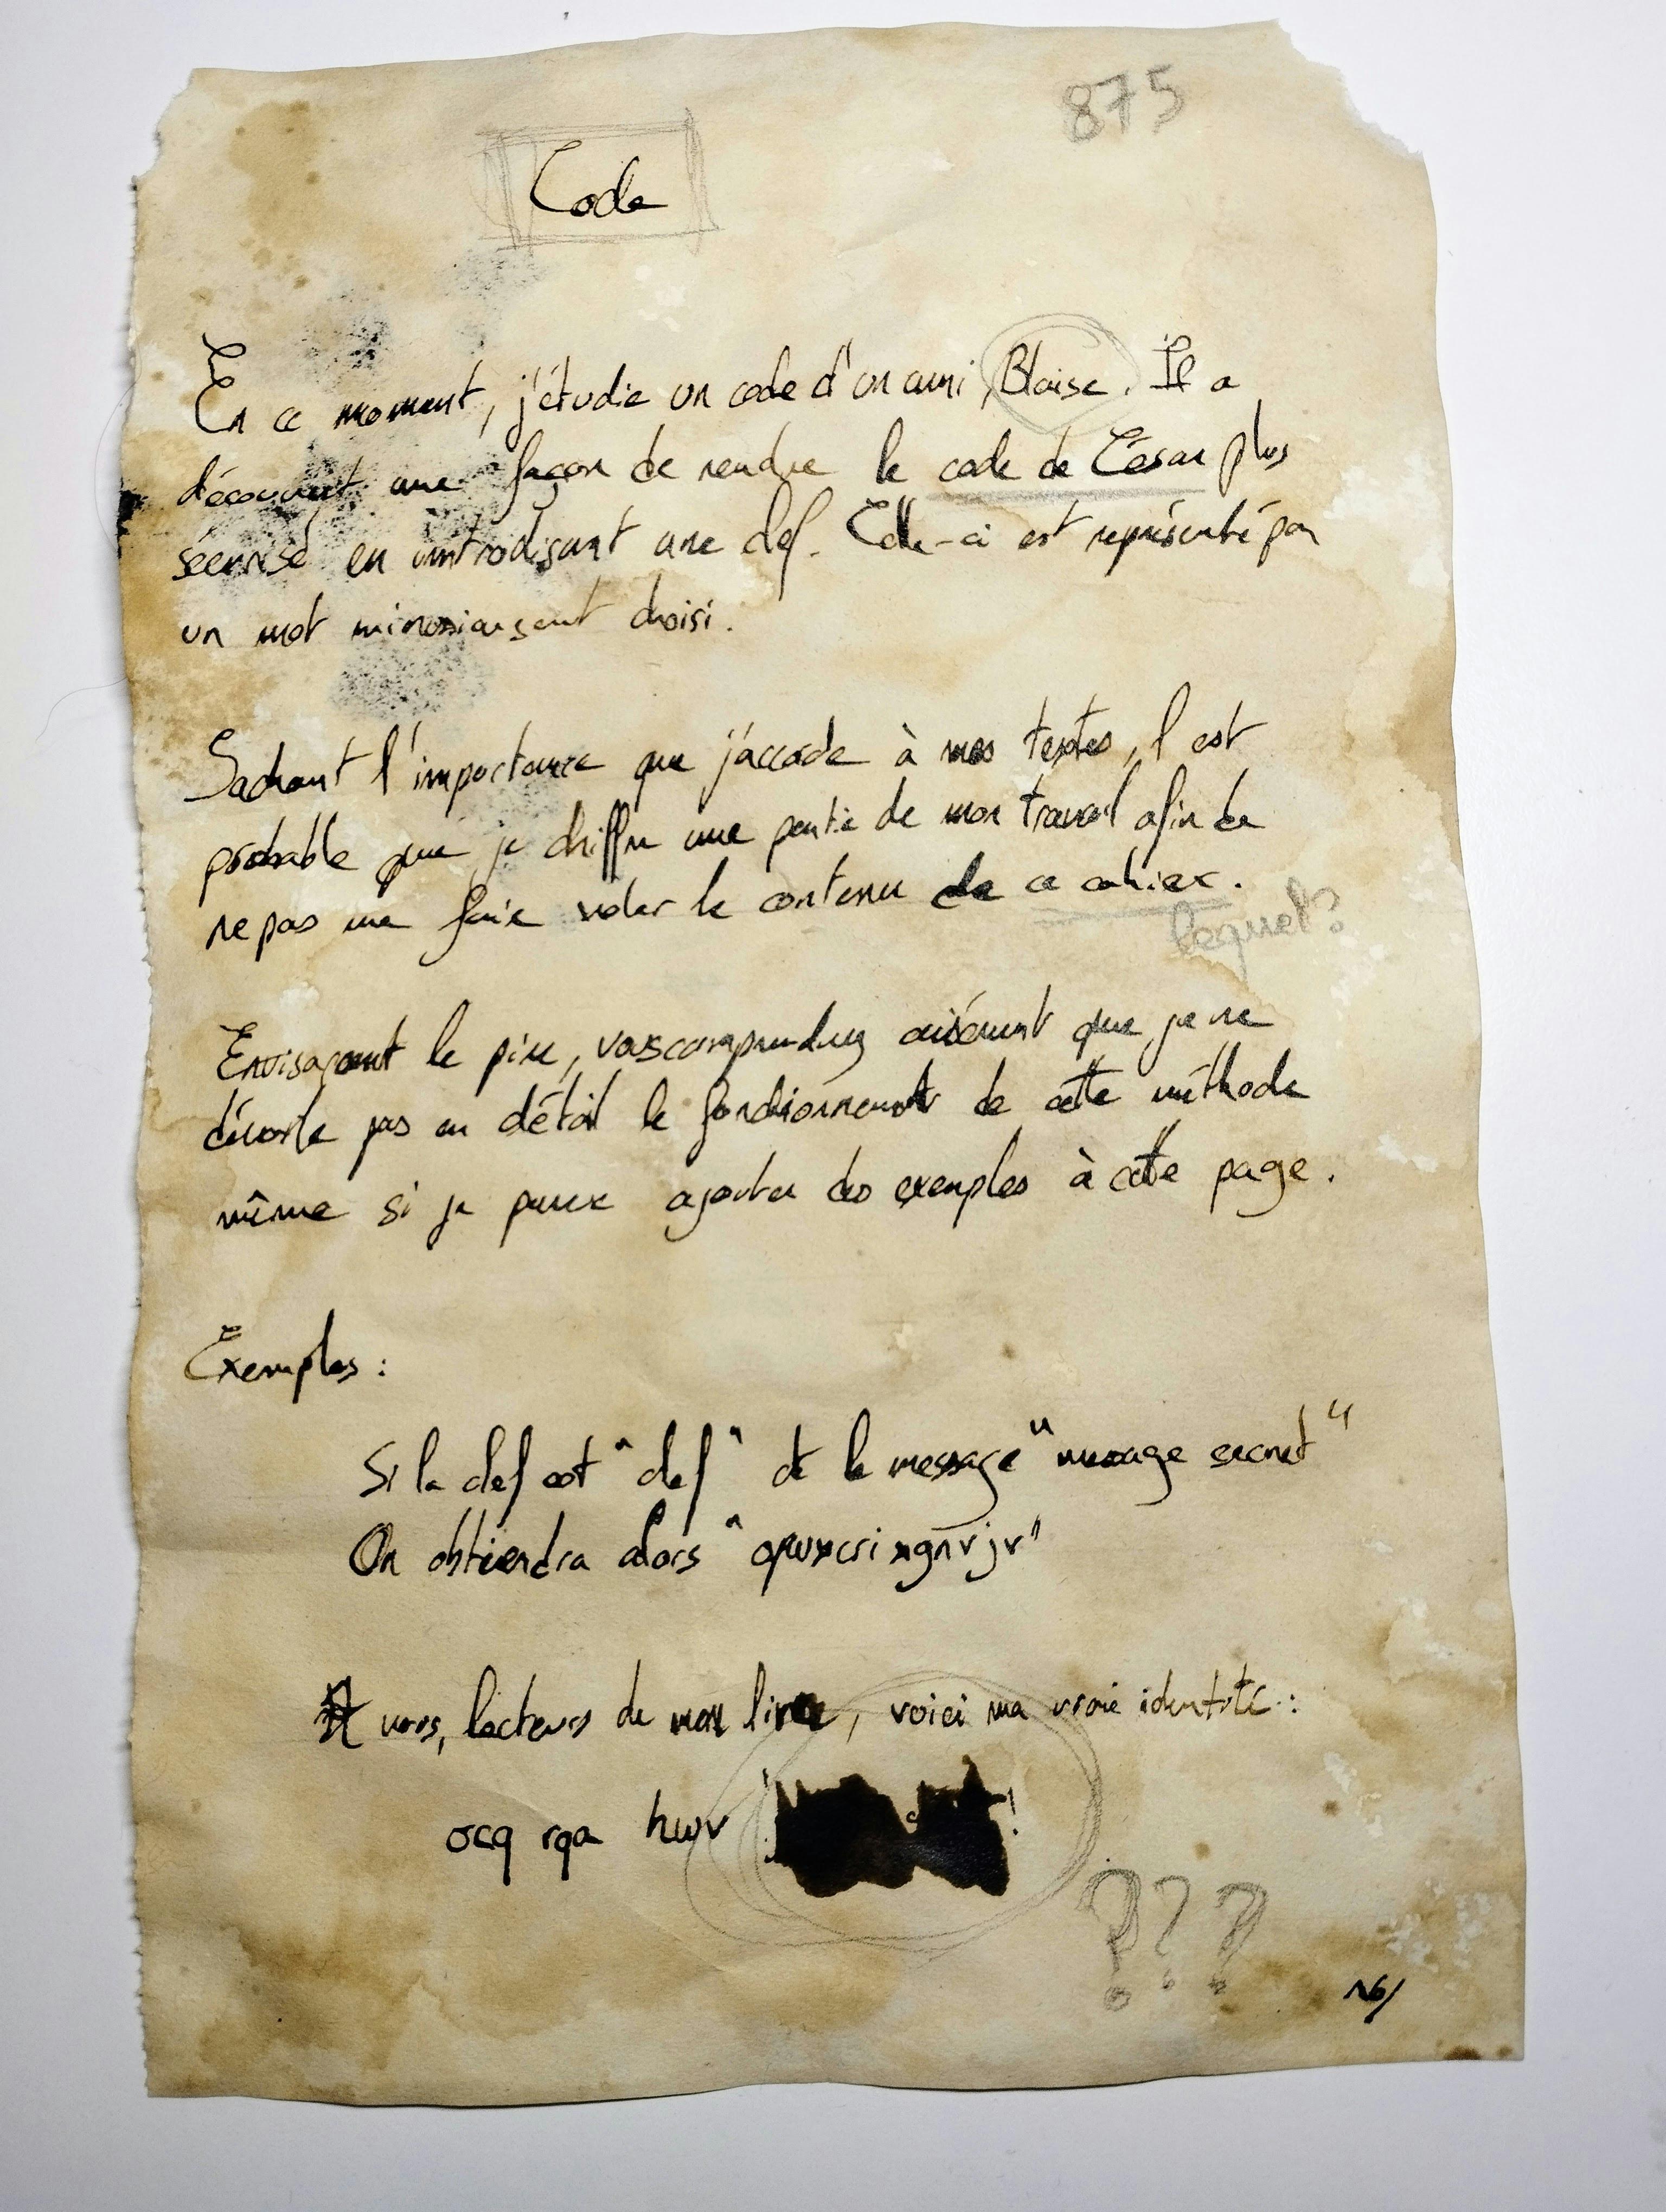 875
Code
En ce moment, j'étudie un code d'un ami, Blaise. Il a
découvert une façon de rendre le code de César plus
en introdisant une clef. Celle-ci est représenté par
un mot choisi.
Sachant l'importance que j'accorde à mes textes, il est
probable que je chiffre une partie de mon travail afin de
ne pas me faire voler le contenu de ce cahier.
lequel?
Envisageant le pire, vous comprendrez aisément que je ne
dévoile pas en détail le fonctionnement de cette méthode
même si je peux ajouter des exemples à cette page.
Exemples :
Si la clef est "clef" et le message "message secret"
On obtiendra alors "opwxcrixgnvjv"
A vous, lecteurs de mon livre, voici ma vraie identité :
ocq rqa hwv !
???